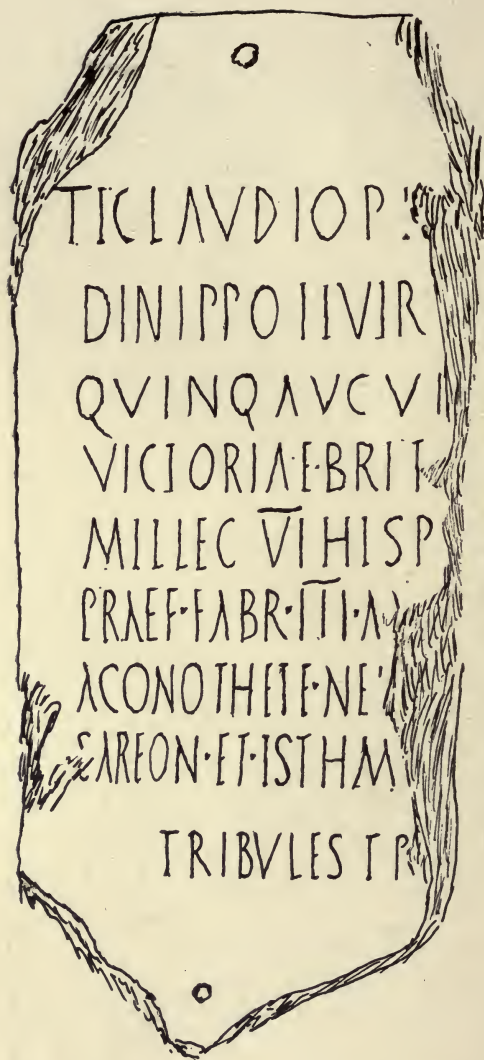 TICLAVDIOP
DINIPPO IIVIR
QVINQAVCVI
VICTORIAE·BRIT
MILLEC V̅I̅HISP
PRAEF·FABR·I̅I̅I̅·A
ACONOTHETE·NE
CAREON·ET·ISTHM
TRIBVLES TR